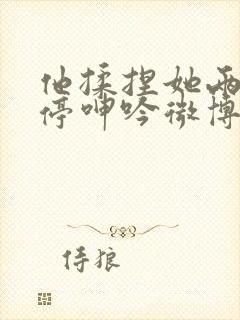 他揉捏她两
停呻吟微博
侍狼